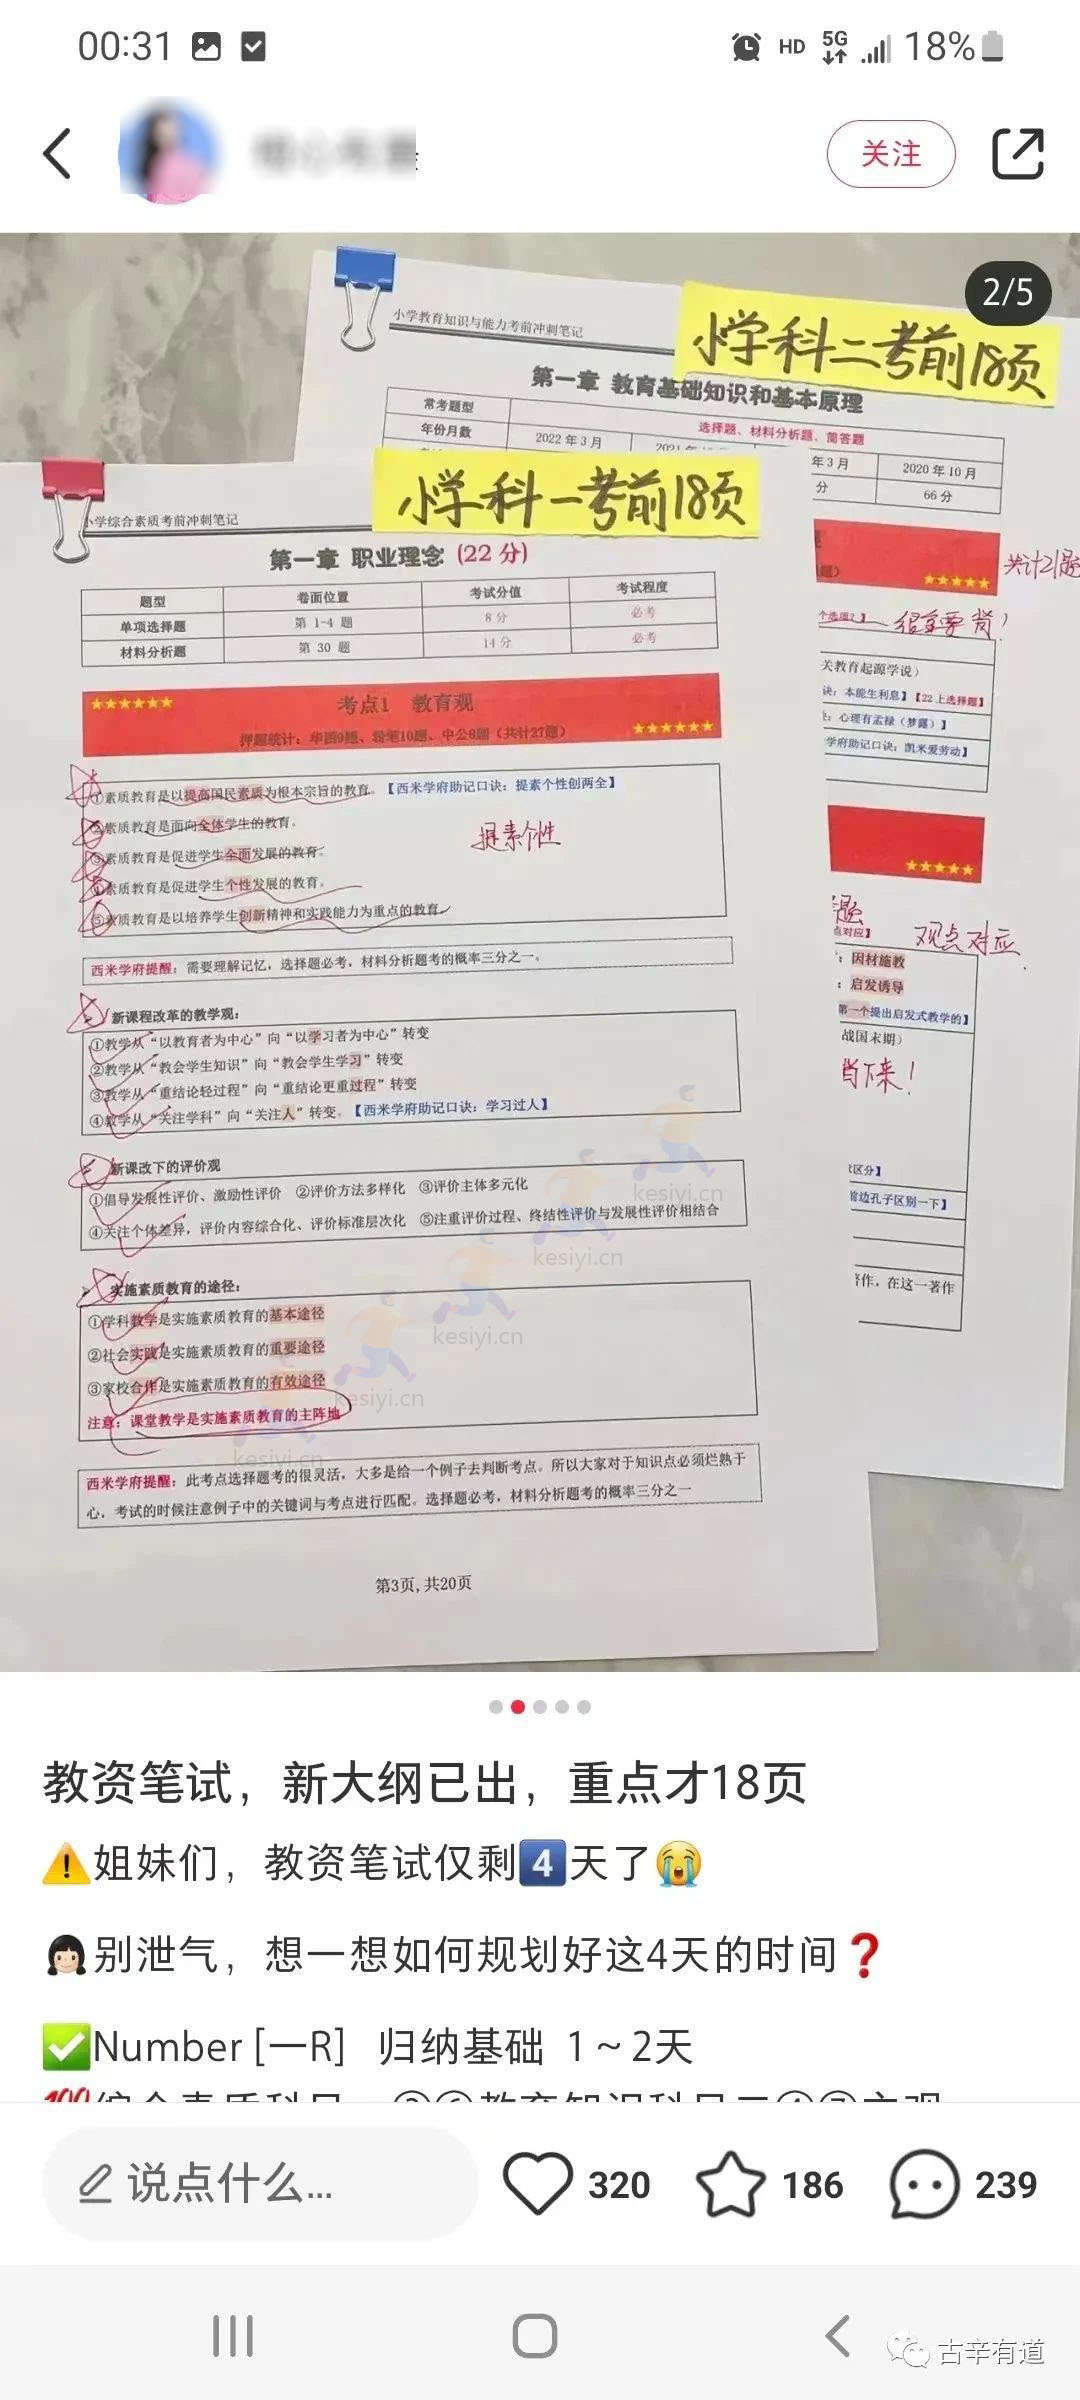 00:31
HD 5G 18%
关注
2/5
小学教育知识与能力考前冲刺笔记
小学科二考前18页
第一章 教育基础知识和基本原理
常考题型
选择题、材料分析题、简答题
年份月数
2022 年 3 月
年 3 月
2020 年 10 月
分
66 分
小学科一考前18页
小学综合素质考前冲刺笔记
第一章 职业理念 (22 分)
题型 卷面位置 考试分值 考试程度
单项选择题 第 1-4 题 8 分 必考
材料分析题 第 30 题 14 分 必考
★★★★★★
考点1 教育观
押题统计：华图9题、粉笔10题、中公8题（共计27题）
★★★★★★
①素质教育是以提高国民素质为根本宗旨的教育。【西米学府助记口诀：提素个性创两全】
②素质教育是面向全体学生的教育。
③素质教育是促进学生全面发展的教育。
④素质教育是促进学生个性发展的教育。
⑤素质教育是以培养学生创新精神和实践能力为重点的教育。
提素个性
西米学府提醒：需要理解记忆，选择题必考，材料分析题考的概率三分之一。
新课程改革的教学观：
①教学从“以教育者为中心”向“以学习者为中心”转变
②教学从“教会学生知识”向“教会学生学习”转变
③教学从“重结论轻过程”向“重结论更重过程”转变
④教学从“关注学科”向“关注人”转变。【西米学府助记口诀：学习过人】
新课改下的评价观
①倡导发展性评价、激励性评价 ②评价方法多样化 ③评价主体多元化
④关注个体差异，评价内容综合化、评价标准层次化 ⑤注重评价过程、终结性评价与发展性评价相结合
实施素质教育的途径：
①学科教学是实施素质教育的基本途径
②社会实践是实施素质教育的重要途径
③家校合作是实施素质教育的有效途径
注意：课堂教学是实施素质教育的主阵地
西米学府提醒：此考点选择题考的很灵活，大多是给一个例子去判断考点。所以大家对于知识点必须烂熟于
心，考试的时候注意例子中的关键词与考点进行匹配。选择题必考，材料分析题考的概率三分之一
第3页,共20页
★★★★★
共计21题
关教育起源学说）
诀：本能生利息】【22 上选择题】
：心理有孟禄（梦露）】
学府助记口诀：凯米爱劳动】
★★★★★
观点对应
点对应】
：因材施教
：启发诱导
第一个提出启发式教学的】
战国末期）
背下来！
区分】
首边孔子区别一下】
作，在这一著作
kesiyi.cn
kesiyi.cn
kesiyi.cn
kesiyi.cn
kesiyi.cn
教资笔试，新大纲已出，重点才18页
⚠️姐妹们，教资笔试仅剩4️⃣天了😭
👧🏻别泄气，想一想如何规划好这4天的时间❓
✅Number [一R] 归纳基础 1～2天
说点什么...
320
186
239
古辛有道